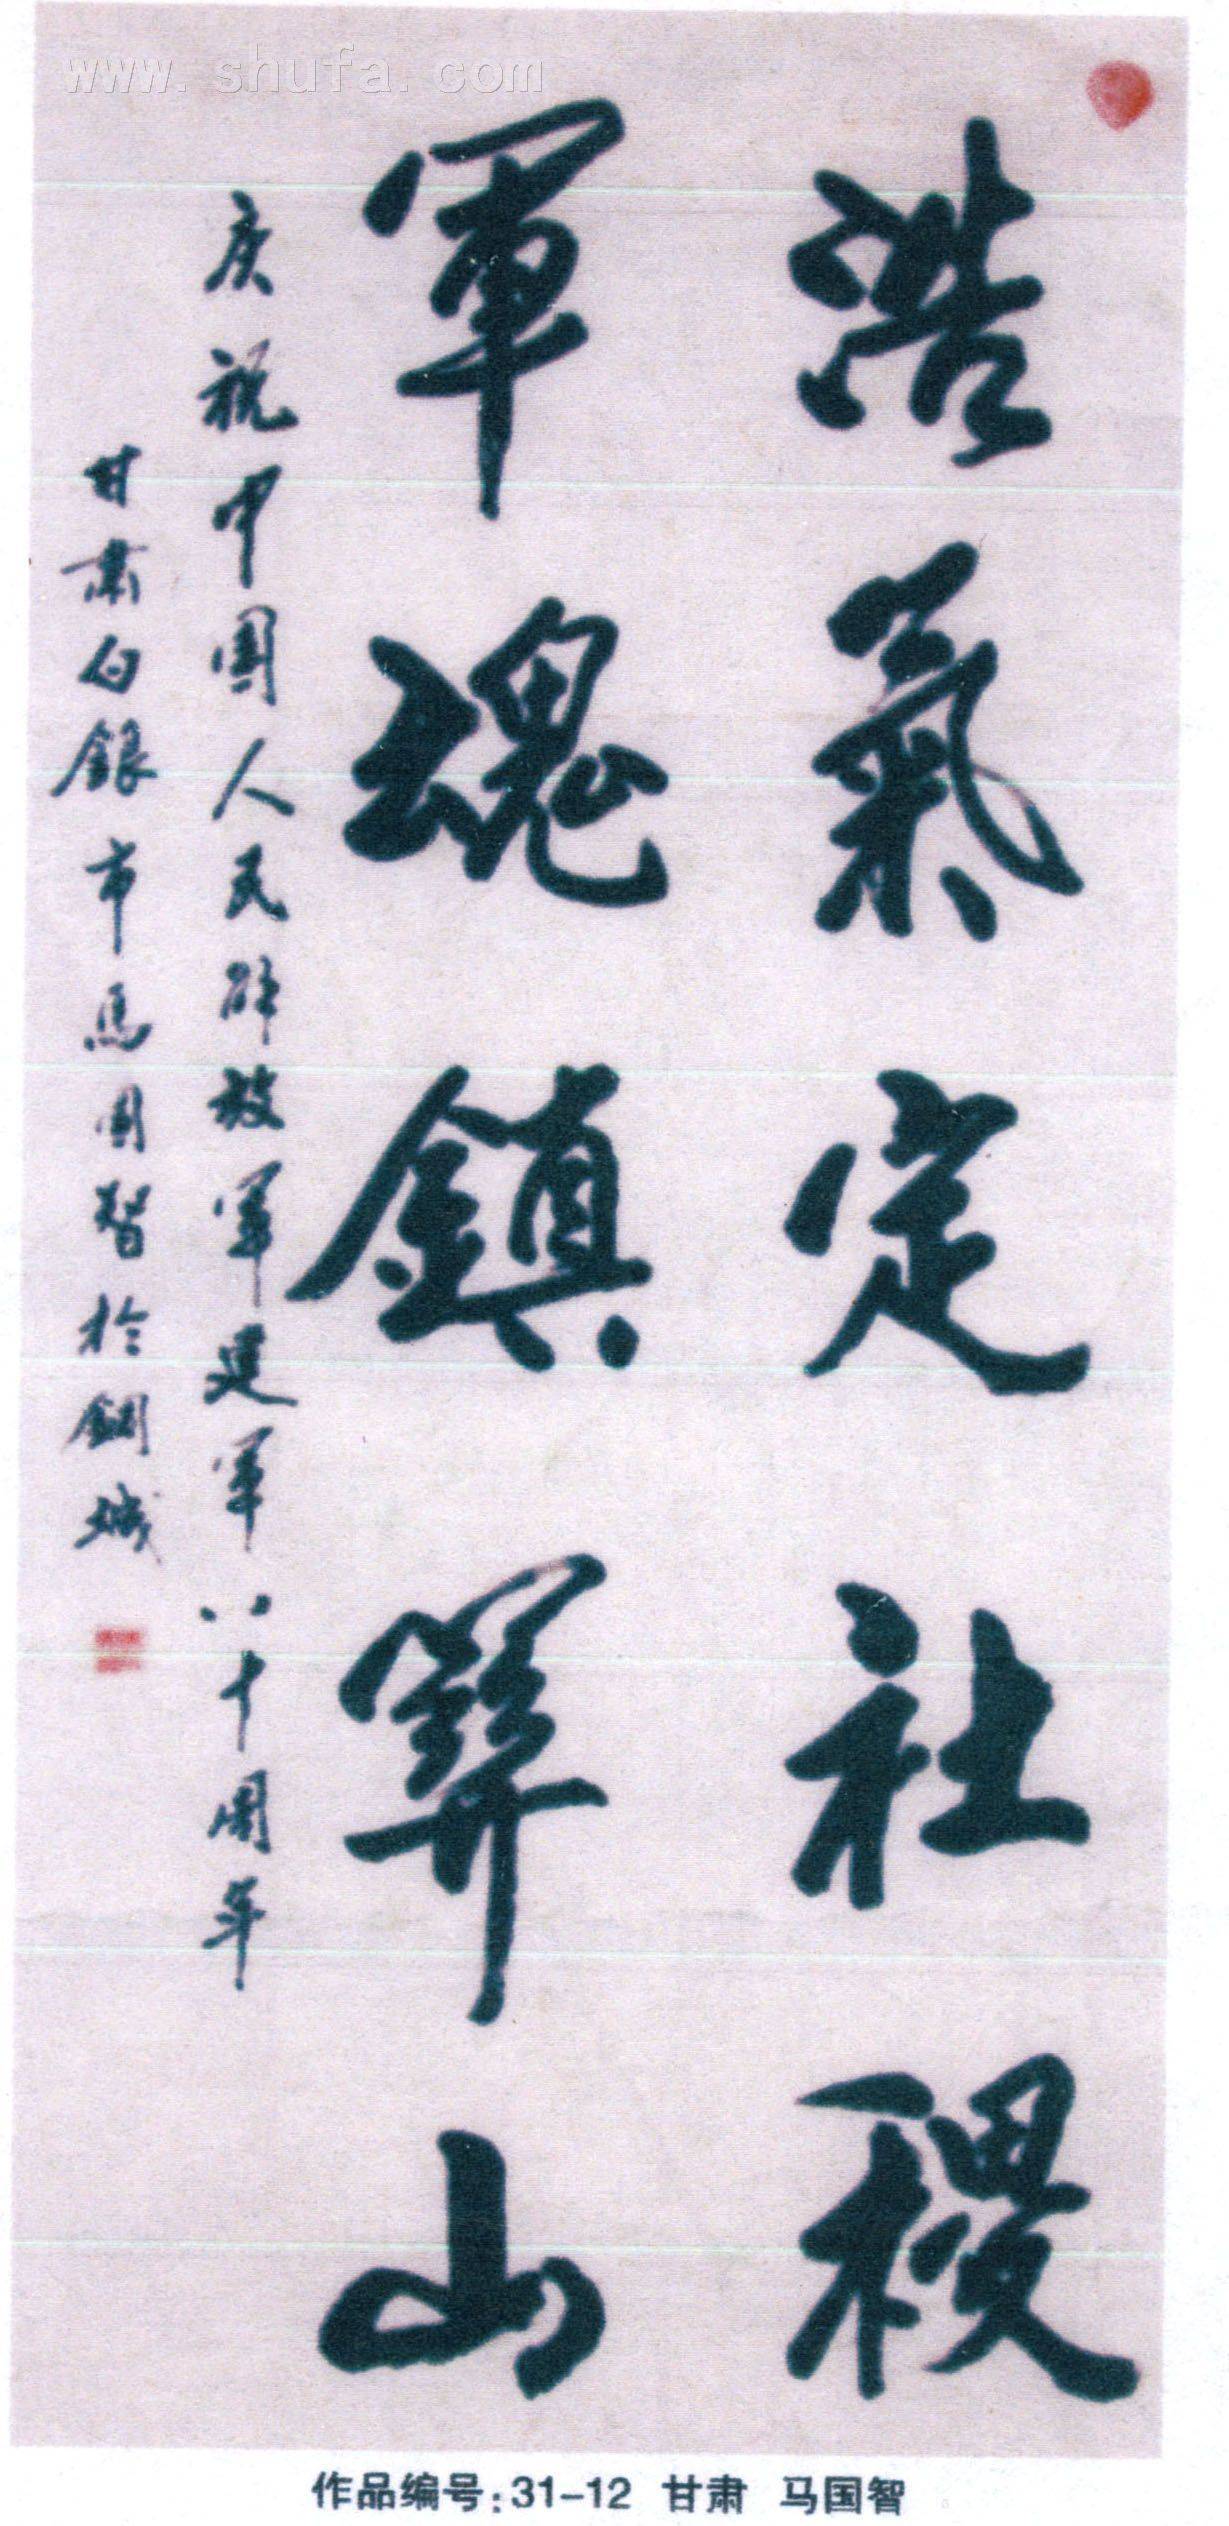 www.shufa.com
浩氣定社稷
軍魂鎮關山
庆祝中國人民解放軍建軍八十周年
甘肅白銀市馬國智於銅城
作品编号:31-12 甘肃 马国智